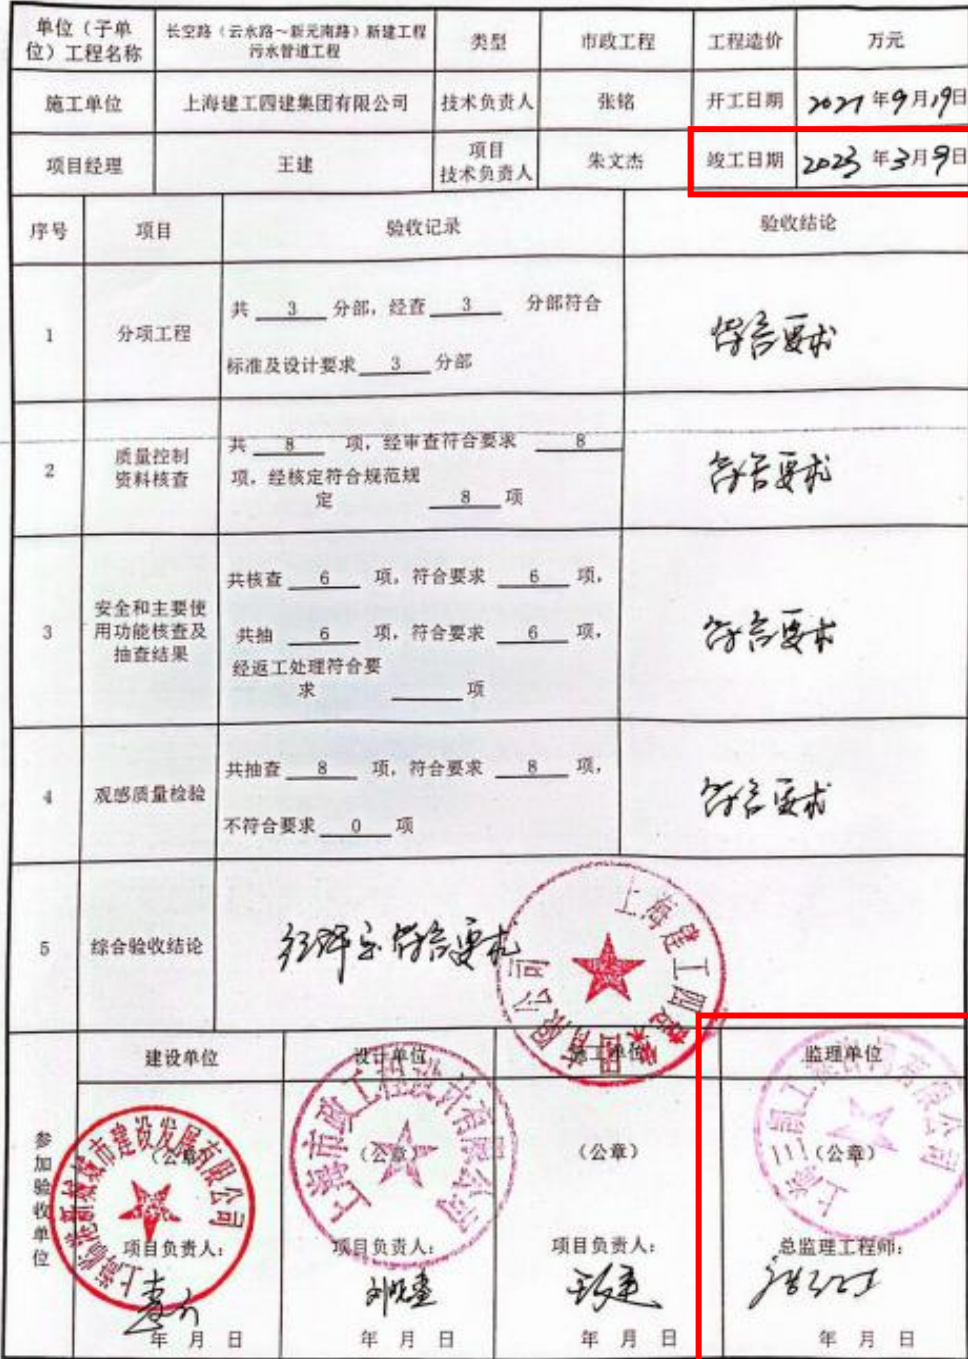 单位(子单
位)工程名称
长空路(云水路~新元南路)新建工程
污水管道工程
类型
市政工程
工程造价
万元
施工单位
上海建工四建集团有限公司
技术负责人
张铭
开工日期
2021年9月19日
项目经理
王建
项目
技术负责人
朱文杰
竣工日期
2023年3月9日
序号
项目
验收记录
验收结论
1
分项工程
共 3 分部,经查 3 分部符合
标准及设计要求 3 分部
符合要求
2
质量控制
资料核查
共 8 项,经审查符合要求 8
项,经核定符合规范规
定 8 项
符合要求
3
安全和主要使
用功能核查及
抽查结果
共核查 6 项,符合要求 6 项,
共抽 6 项,符合要求 6 项,
经返工处理符合要
求 项
符合要求
4
观感质量检验
共抽查 8 项,符合要求 8 项,
不符合要求 0 项
符合要求
5
综合验收结论
经评定符合要求
上海建工四建集团有限公司
参加验收单位
建设单位
设计单位
施工单位
监理单位
(公章)
(公章)
(公章)
(公章)
上海市政工程设计有限公司
项目负责人:
项目负责人:
项目负责人:
总监理工程师:
王建
年 月 日
年 月 日
年 月 日
年 月 日